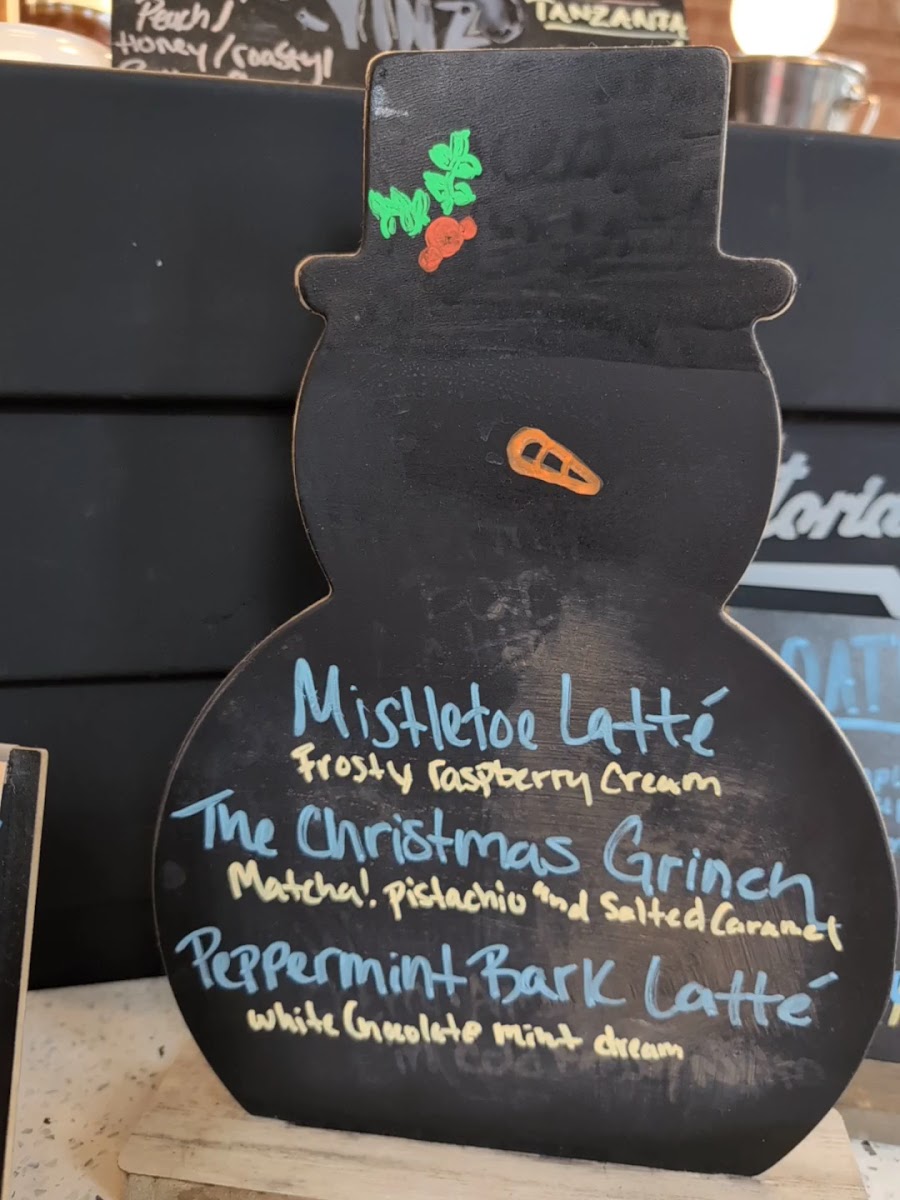 Peach/
Honey/roasty/
YINZ
TANZANIA
Mistletoe Latté
Frosty raspberry Cream
The Christmas Grinch
Matcha! pistachio and Salted Caramel
Peppermint Bark Latté
white Chocolate mint dream
toria
OAT